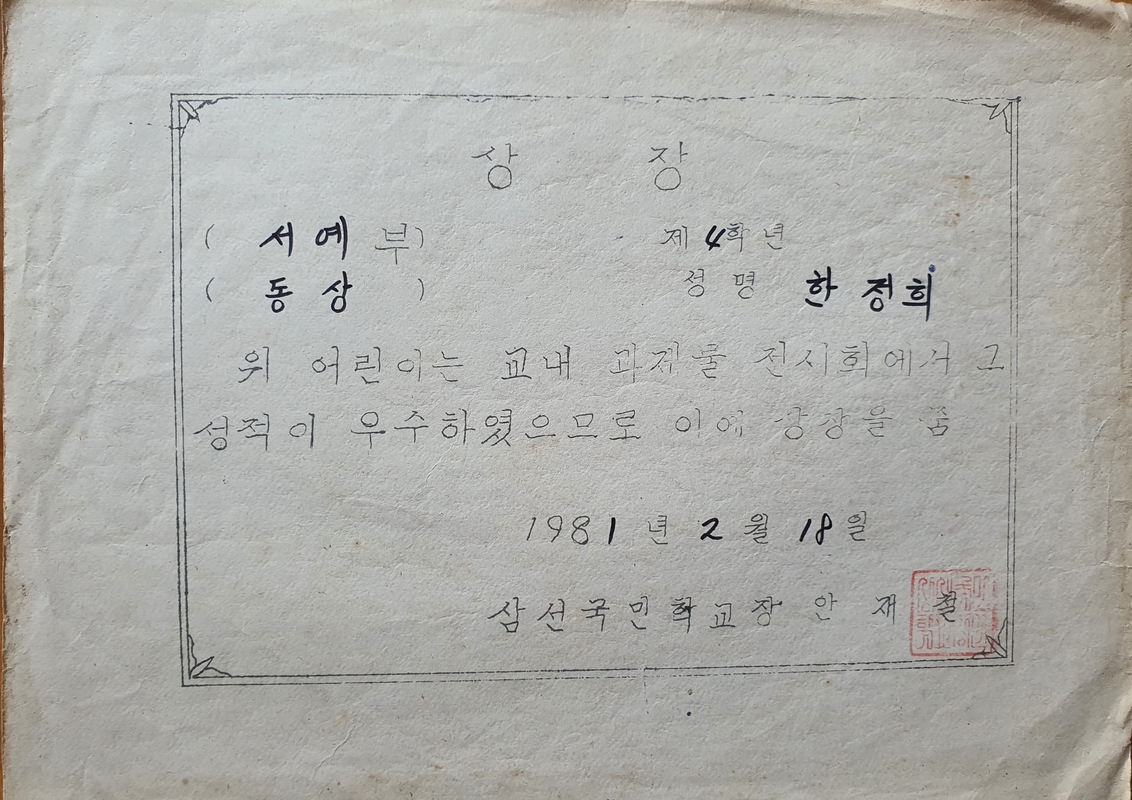 상 장
( 서예부) 제 4학년
( 동상 ) 성명 한정희
위 어린이는 교내 과제물 전시회에서 그
성적이 우수하였으므로 이에 상장을 줌
1981년 2월 18일
삼선국민학교장 안재철